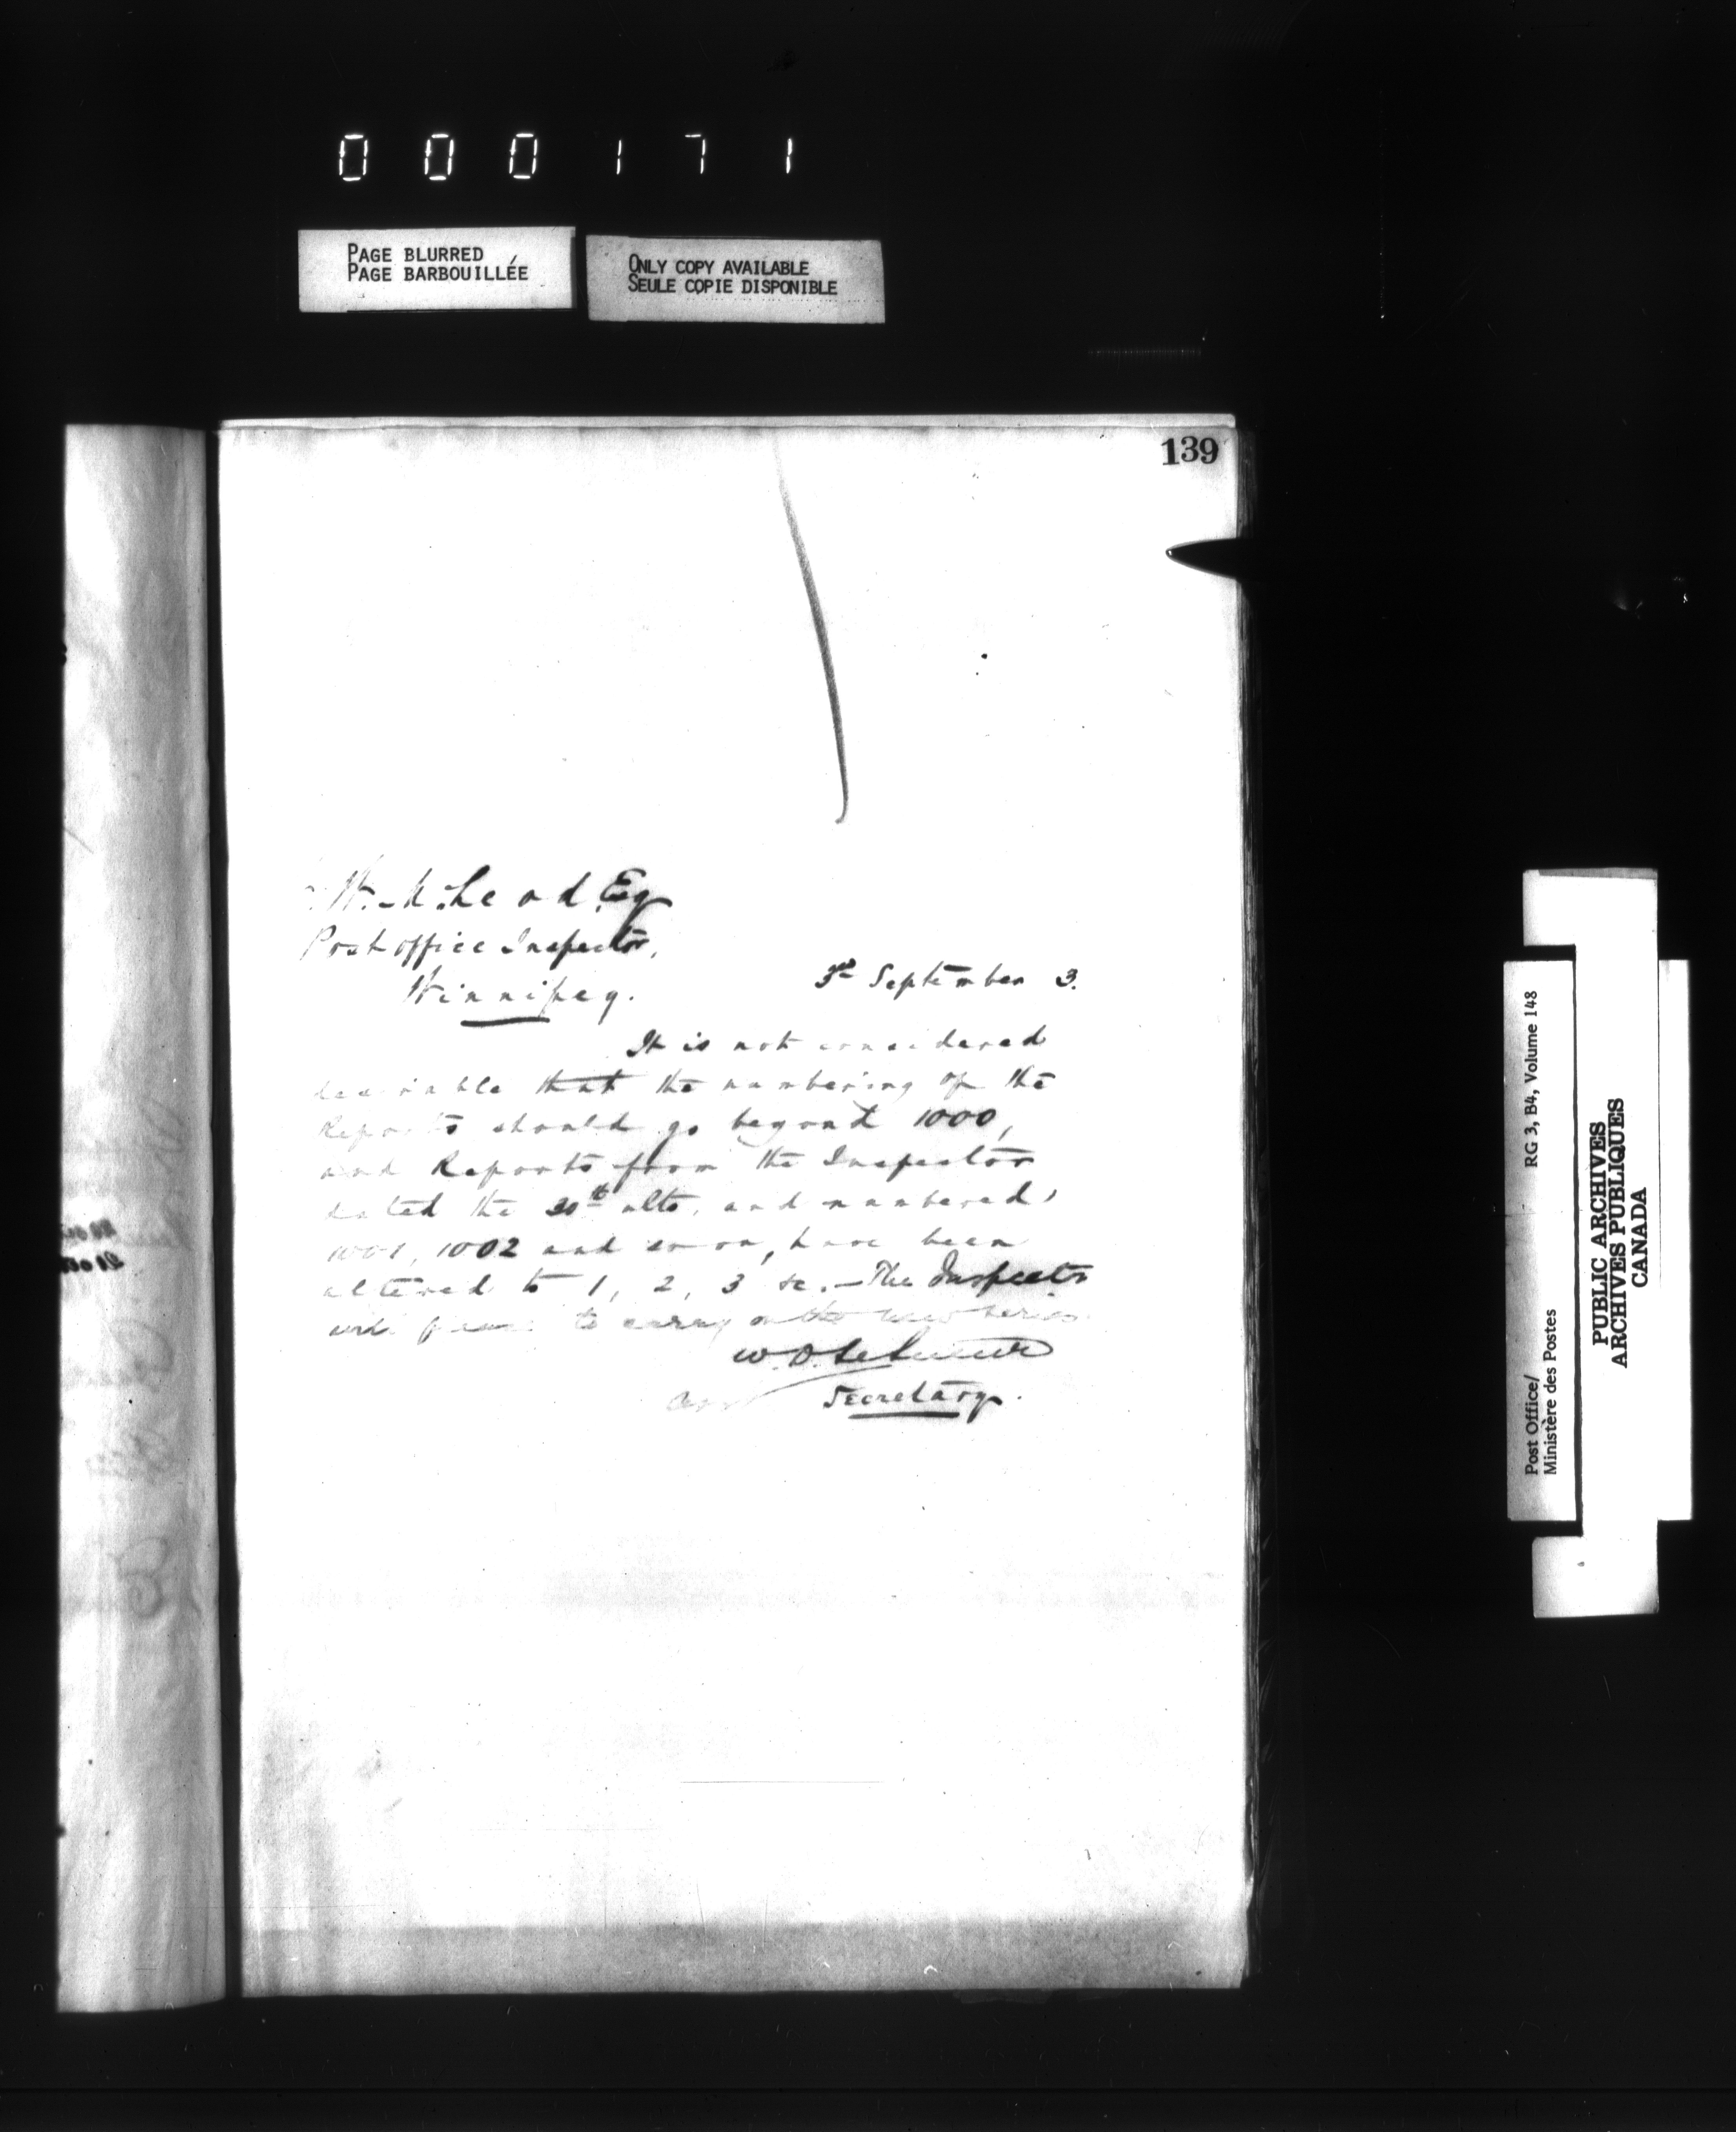 000171
PAGE BLURRED
PAGE BARBOUILLÉE
ONLY COPY AVAILABLE
SEULE COPIE DISPONIBLE
139
Esq
Post office Inspector,
Winnipeg.
3rd September 3.
It is not considered
desirable that the numbering of the
Reports should go beyond 1000,
and Reports from the Inspector
dated the 30th ulto. and numbered,
1001, 1002 and so on, have been
altered to 1, 2, 3 &c. - The Inspector
will please to carry on the new series.
W. D. LeSueur
Secretary.
RG 3, B4, Volume 148
Post Office/
Ministère des Postes
PUBLIC ARCHIVES
ARCHIVES PUBLIQUES
CANADA